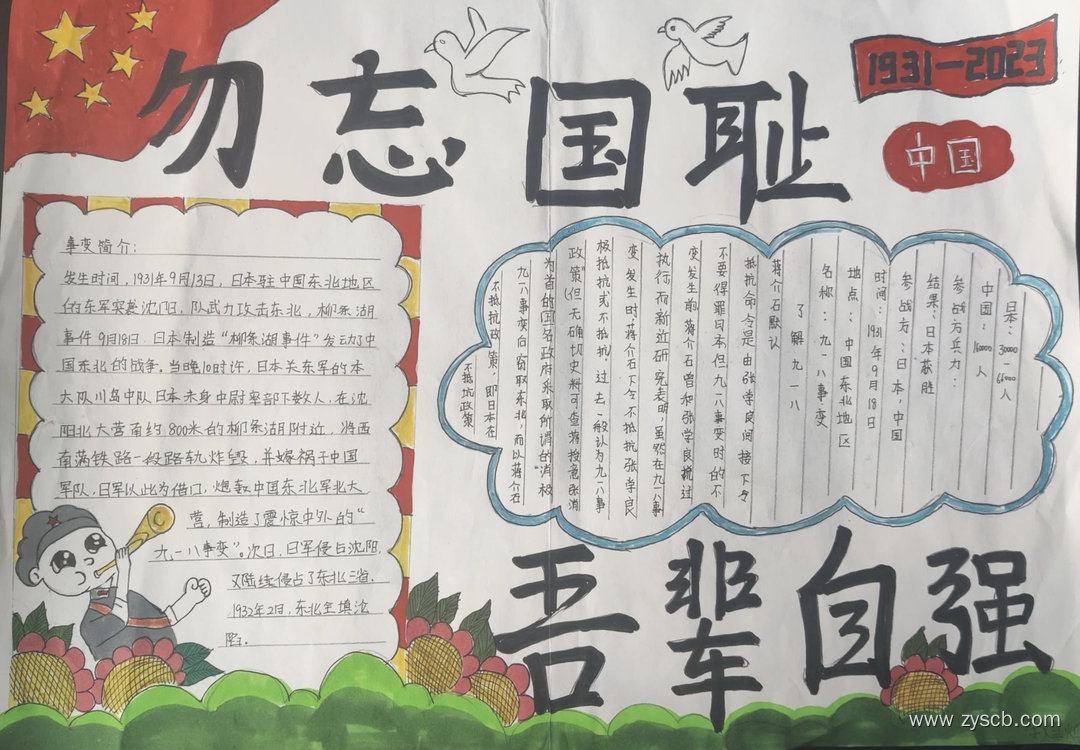 勿忘国耻
1931—2023
中国
事变简介：
发生时间，1931年9月13日，日本驻中国东北地区
的东军突袭沈阳，队武力攻击东北，柳条湖
事件9月18日，日本制造“柳条湖事件”发动了中
国东北的战争。当晚10时许，日本关东军的本
大队川岛中队日本未身中尉率部下数人，在沈
阳北大营南约800米的柳条湖附近，将西
南满铁路一段路轨炸毁，并嫁祸于中国
军队，日军以此为借口，炮轰中国东北军北大
营，制造了震惊中外的“
九·一八事变”。次日，日军侵占沈阳，
又陆续侵占了东北三省。
1932年2日，东北全填沧
陷。
不抵坑政策
不抵抗政策：即日本在
九一八事变后窃取东北，而以蒋介石
为首的国名政府采取所谓的“消极
政策”(但无确切史料可查蒋授意张消
极抵抗或不抵抗，过去一般认为九一八事
变发生时，蒋介石下令不抵抗张学良
执行而新近研究表明，虽然在九一八事
变发生前蒋介石曾和张学良提过
不要得罪日本但九一八事变时的不
抵抗命令是由张学良间接下令
蒋介石默认
了解九一八
名称：九一八事变
地点：中国东北地区
时间：1931年9月18日
参战方：日本，中国
结果：日本获胜
参战方兵力：
中国：160000人
日本：30000-66000人
吾辈自强
www.zyscb.com